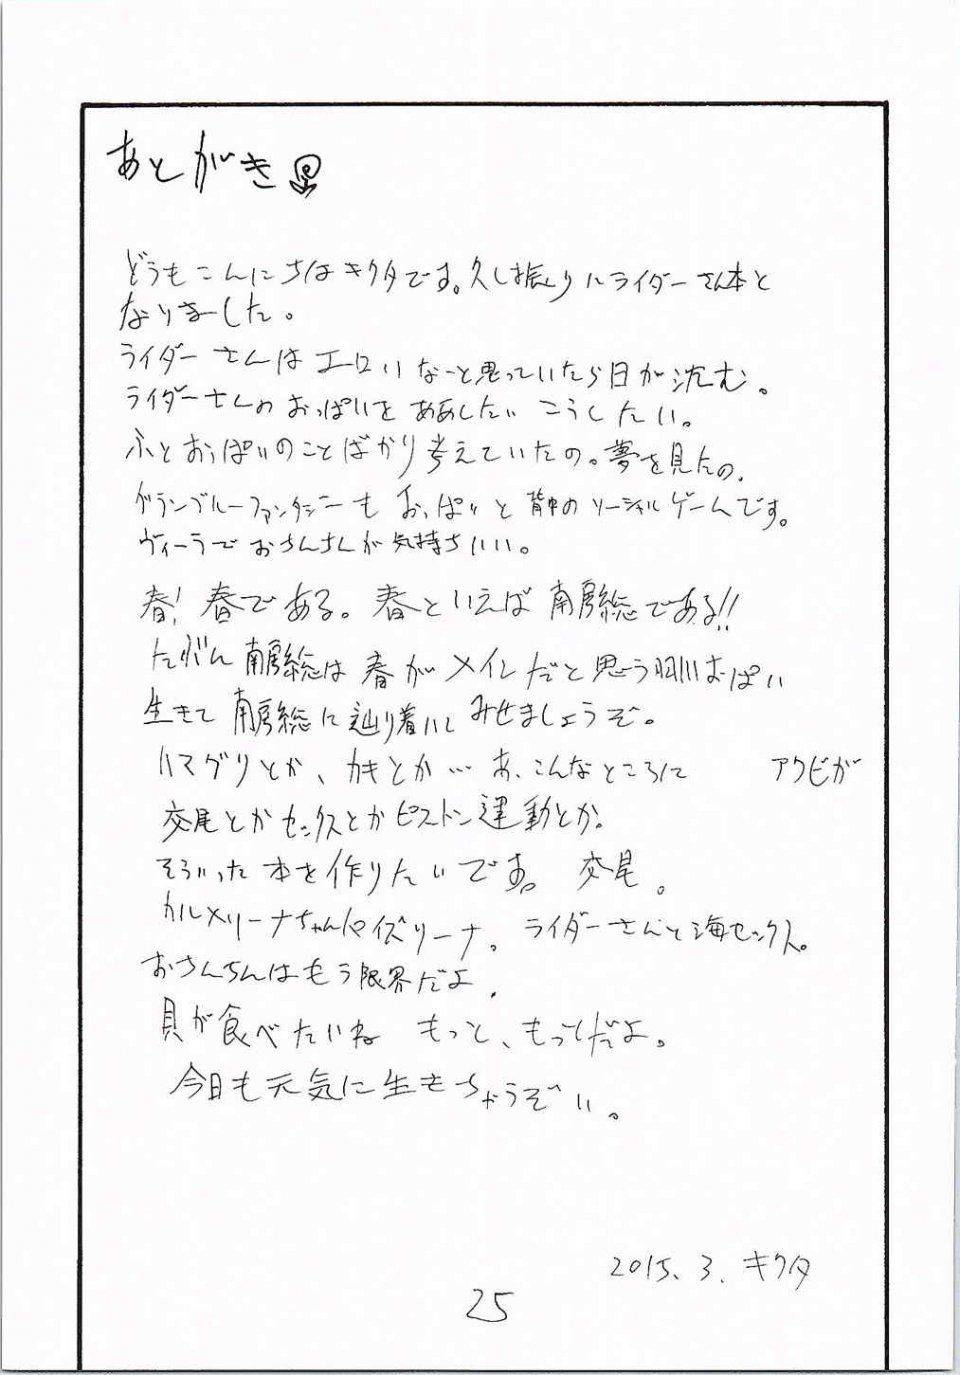 あとがき
どうもこんにちはキクタです。久し振りにライダーさん本と
なりました。
ライダーさんはエロいなーと思っていたら日が沈む。
ライダーさんのおっぱいをああしたいこうしたい。
ふとおっぱいのことばかり考えていたの。夢を見たの。
グランブルーファンタジーもおっぱいと背中のソーシャルゲームです。
ヴィーラでおちんちんが気持ちいい。
春!春である。春といえば南房総である!!
たぶん南房総は春がメインだと思う おっぱい
生きて南房総に辿り着いてみせましょうぞ。
ハマグリとか、カキとか…あ、こんなところに アワビが
交尾とかセックスとかピストン運動とか。
そういった本を作りたいです。交尾。
カルメリーナちゃんパイズリーナ。ライダーさんと海セックス。
おちんちんはもう限界だよ。
貝が食べたいね もっと、もっとだよ。
今日も元気に生きちゃうぞい。
2015.3.キクタ
25